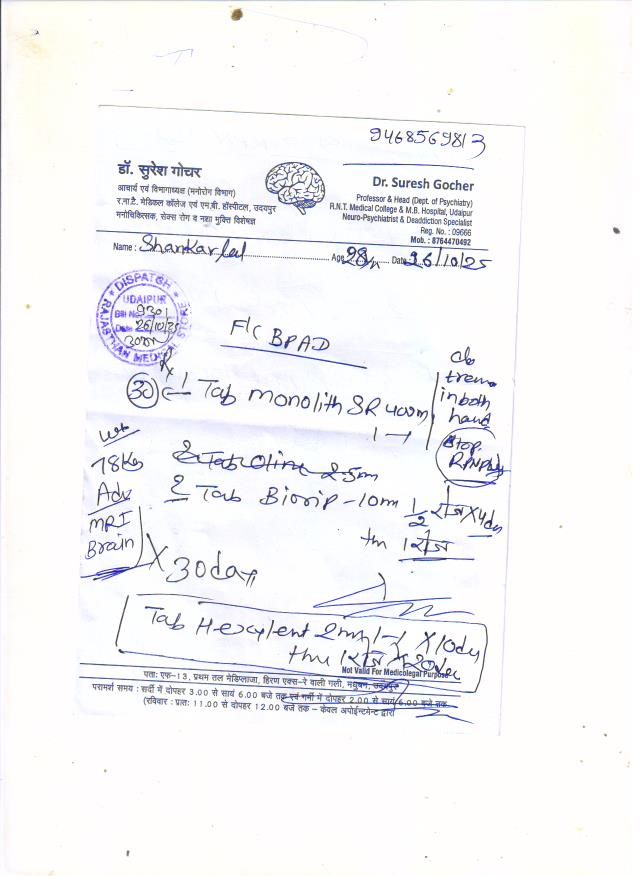 9468569813
डॉ. सुरेश गोचर
आचार्य एवं विभागाध्यक्ष (मनोरोग विभाग)
र.ना.टै. मेडिकल कॉलेज एवं एम.बी. हॉस्पीटल, उदयपुर
मनोचिकित्सक, सेक्स रोग व नशा मुक्ति विशेषज्ञ
Dr. Suresh Gocher
Professor & Head (Dept. of Psychiatry)
R.N.T. Medical College & M.B. Hospital, Udaipur
Neuro-Psychiatrist & Deaddiction Specialist
Reg. No. : 09666
Mob. : 8764470492
Name : Shankarlal Age 28 Date 26/10/25
DISPATCH
UDAIPUR
Bill No. 930
Date 26/10/25
RAJASTHAN MEDICAL STORE
F/c BPAD
Rx
30 1 Tab Monolith SR 400m
1 —1
c/o
in both
hand
Stop
wt
78 Kg
Adv
MRI
Brain
2 Tab 2.5m
2 Tab - 10m 1/2 रोज X 4
1 रोज
X 30 days
Tab 2m 1—1 X 10 dy
1 रोज X 20
Not Valid For Medicolegal Purpose
पताः एफ-13, प्रथम तल मेडिप्लाजा, हिरण एक्स-रे वाली गली, मधुबन, उदयपुर
परामर्श समय : सर्दी में दोपहर 3.00 से सायं 6.00 बजे तक एवं गर्मी में दोपहर 2.00 से सायं 6.00 बजे तक
(रविवार : प्रातः 11.00 से दोपहर 12.00 बजे तक – केवल अपोईन्टमेन्ट द्वारा